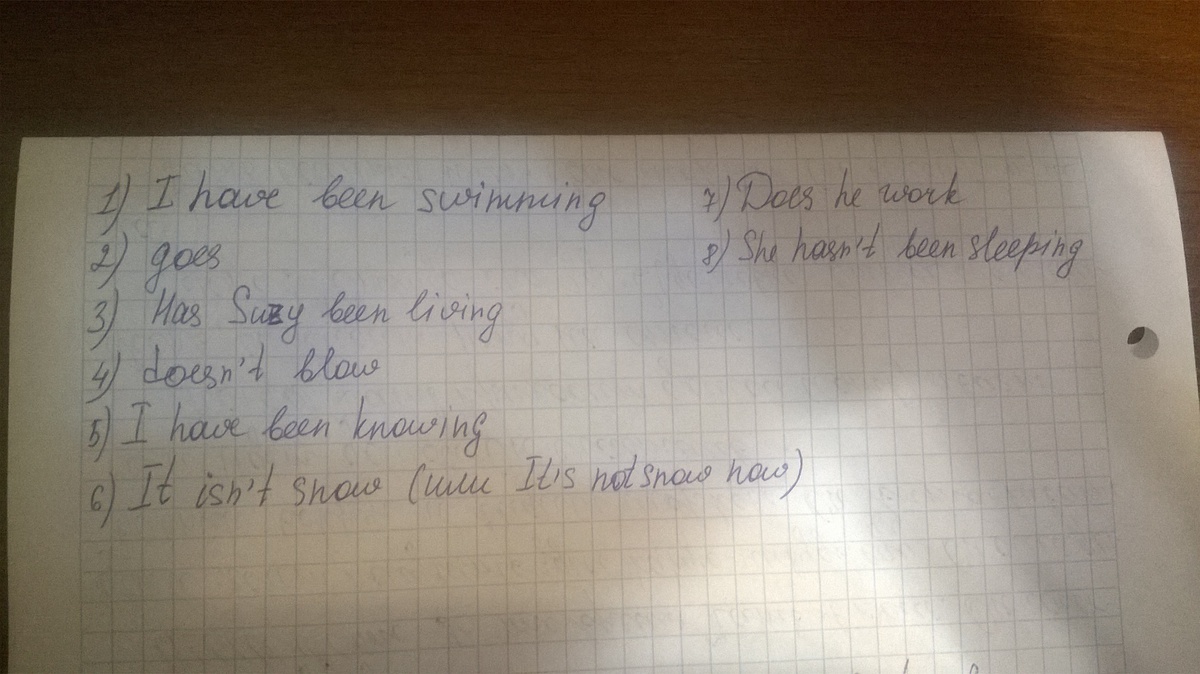 1) I have been swimming
2) goes
3) Has Suzy been living
4) doesn't blow
5) I have been knowing
6) It isn't snow (или It's not snow now)
7) Does he work
8) She hasn't been sleeping